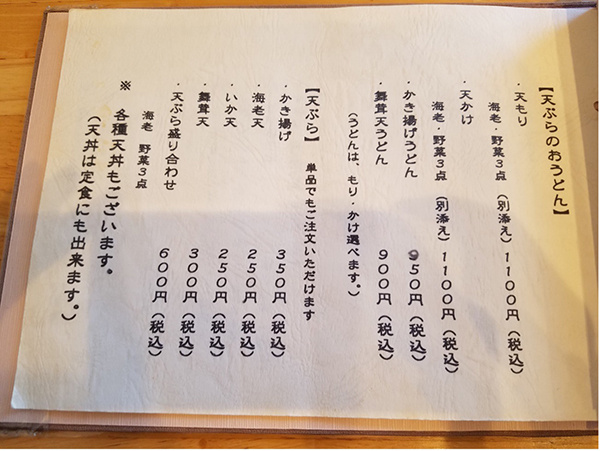 【天ぷらのおうどん】
・天もり
海老・野菜3点（別添え）1100円（税込）
・天かけ
海老・野菜3点（別添え）1100円（税込）
・かき揚げうどん 950円（税込）
・舞茸天うどん 900円（税込）
（うどんは、もり・かけ選べます。）
【天ぷら】 単品でもご注文いただけます
・かき揚げ 350円（税込）
・海老天 250円（税込）
・いか天 250円（税込）
・舞茸天 300円（税込）
・天ぷら盛り合わせ 600円（税込）
海老 野菜3点
※ 各種天丼もございます。
（天丼は定食にも出来ます。）